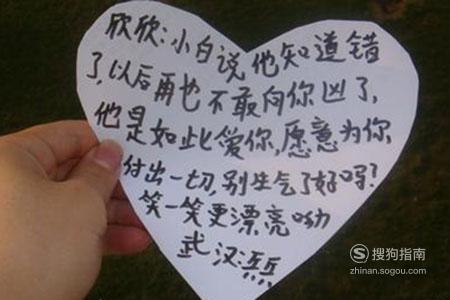 欣欣:小白说他知道错
了,以后再也不敢向你凶了,
他是如此爱你,愿意为你
付出一切,别生气了好吗?
笑一笑更漂亮呦
武汉:
搜狗指南
zhinan.sogou.com